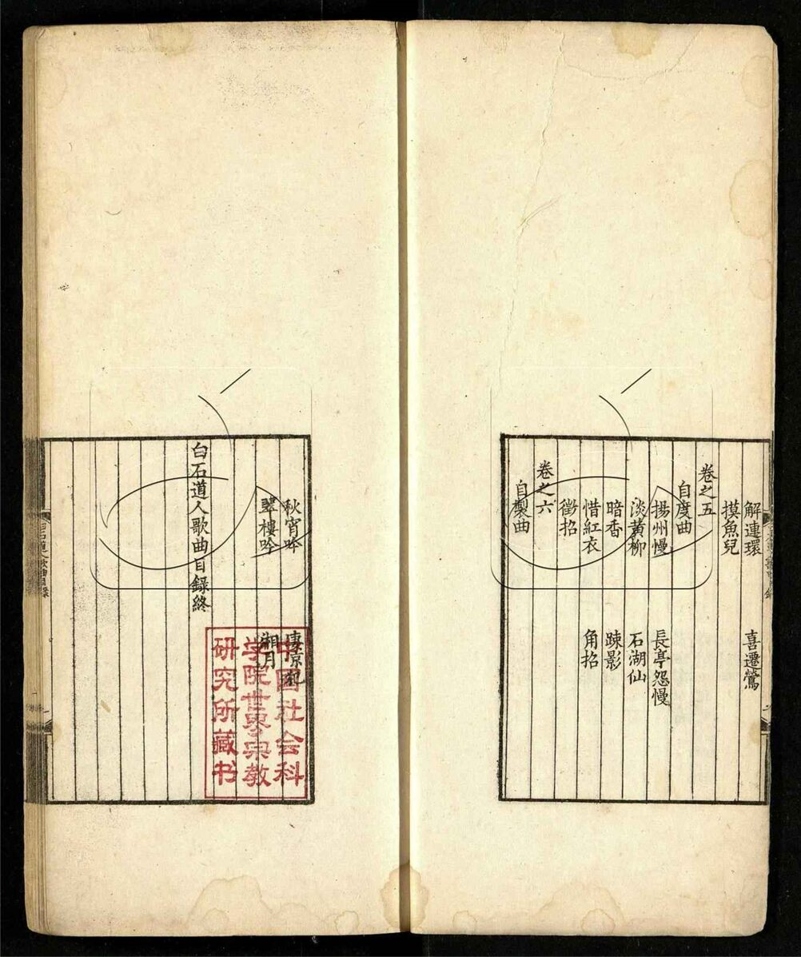 解連環 喜遷鶯
摸魚兒
卷之五
自度曲
揚州慢 長亭怨慢
淡黃柳 石湖仙
暗香 疎影
惜紅衣 角招
徵招
卷之六
自製曲
秋宵吟
翠樓吟 湘月
白石道人歌曲目錄終
中國社会科
学院世界宗教
研究所藏书